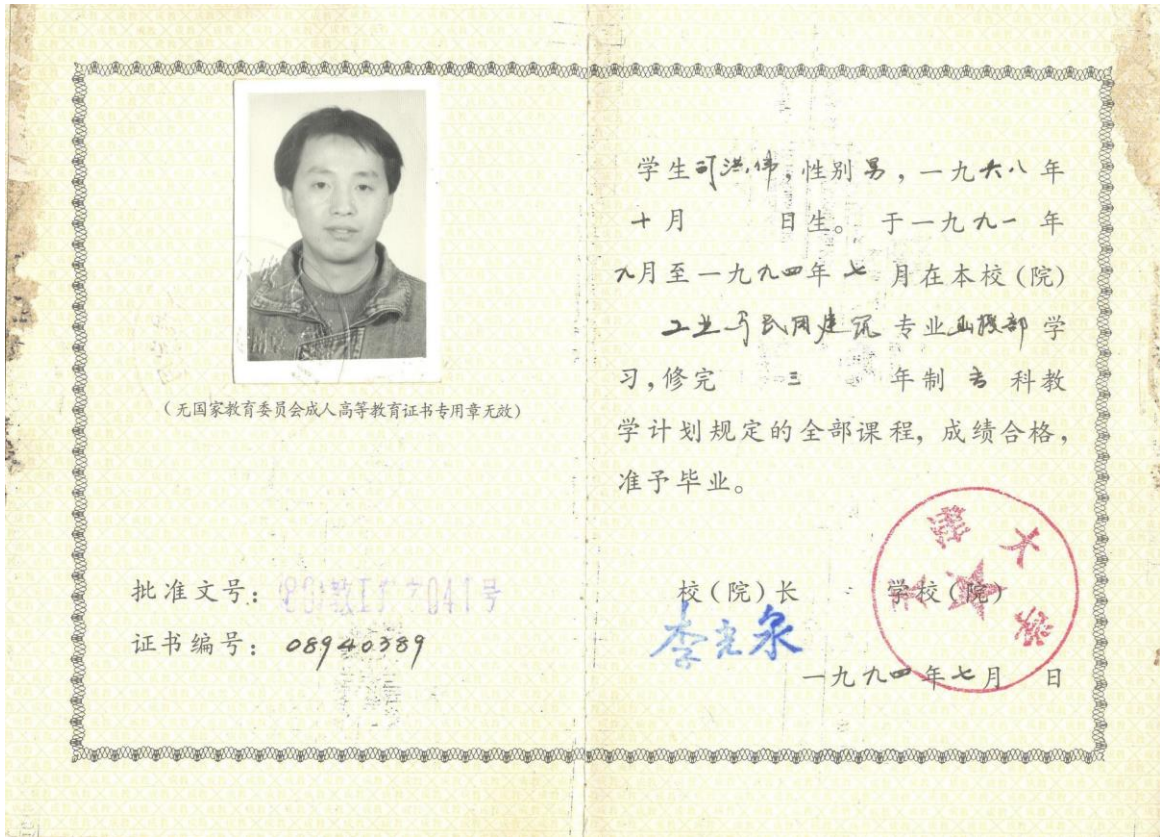 (无国家教育委员会成人高等教育证书专用章无效)
批准文号：
证书编号：08940389
学生司洪伟，性别男，一九六八年
十月 日生。于一九九一年
九月至一九九四年七月在本校(院)
工业与民用建筑专业函授部学
习，修完三年制专科教
学计划规定的全部课程，成绩合格，
准予毕业。
校(院)长 学校(院)
一九九四年七月 日